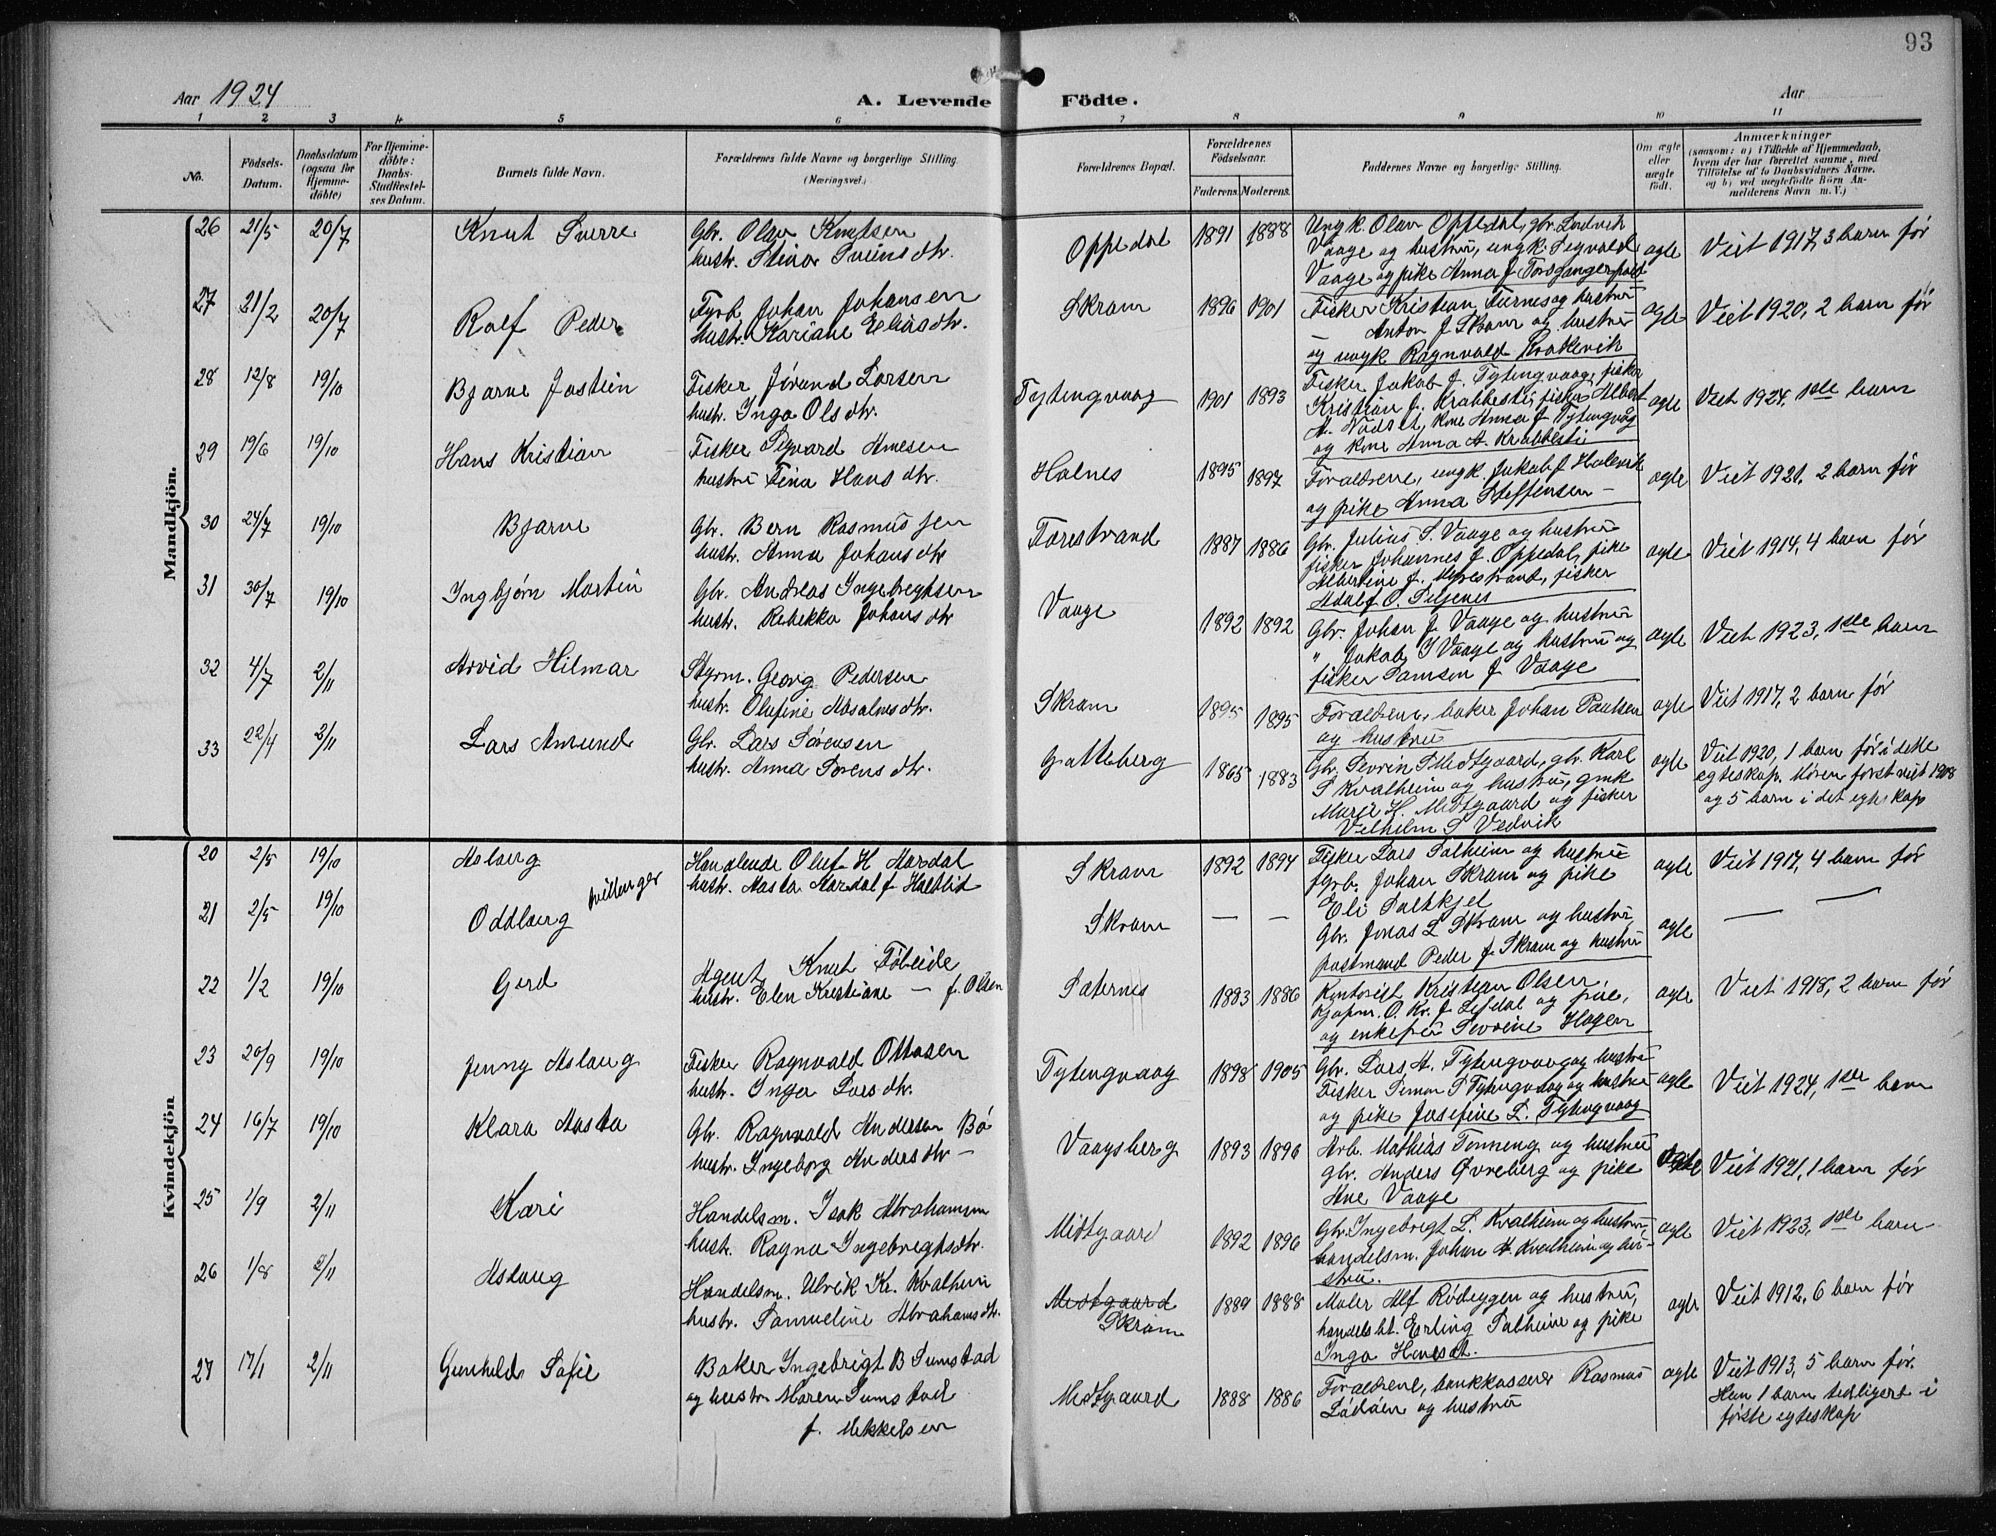 93
Aar 1924
A. Levende Födte.
Aar
1 2 3 4 5 6 7 8 9 10 11
No.
Födsels-Datum.
Daabsdatum (ogsaa for Hjemme-döbte)
For Hjemme-döbte: Daabs-Stadfestel-ses Datum.
Barnets fulde Navn.
Forældrenes fulde Navne og borgerlige Stilling. (Næringsvei.)
Forældrenes Bopæl.
Forældrenes Födselsaar.
Faderens. Moderens.
Faddernes Navne og borgerlige Stilling.
Om ægte eller uægte födt.
Anmærkninger
(saasom: a) i Tilfælde af Hjemmedaab,
hvem der har forrettet samme, med
Tilföielse af to Daabsvidners Navne.
og b) ved uægtefödte Börn An-
melderens Navn m. V.)
Mandkjön.
26 21/5 20/7 Knut Sverre Gbr. Olav Knutsen Oppedal 1891 1888 Ungk. Olav Oppedal, gbr. Ludvik ægte Viet 1917, 3 barn før
hustr. Vaage og hustru, ungk. Sigvald
Vaage og pike Anna J
27 21/2 20/7 Rolf Peder Fyrb. Johan Johansen Skram 1896 1901 Fisker Kristian Furnes og hustru ægte Viet 1920, 2 barn før
hustr. Kariane Eliasdtr. Anton J Skram og hustru
og ungk Ragnvald
28 12/8 19/10 Bjarne Jostein Fisker Jørund Larsen Tytingvaag 1901 1893 Fisker Jakob J. Tytingvaag, fisker ægte Viet 1924, 1ste barn
hustr. Inga Olsdtr. Kristian J. Krabbesti, fisker Albert
A. Nødset, kone Anna J Tytingvåg
og kone Anna A. Krabbesti
29 19/6 19/10 Hans Kristian Fisker Sigvard Amesen Holnes 1895 1897 Forældrene, ungk Jakob J Halsvik ægte Viet 1921, 2 barn før
hustru Tina Hans dtr. og pike Anna Steffensen —
30 24/7 19/10 Bjarne Gbr. Bern Rasmussen Torestrand 1887 1886 Gbr. Julius S. Vaage og hustru ægte Viet 1914, 4 barn før
hustr. Anna Johans dtr fisker Johannes J. Oppedal, pike
Albertine J. Myrestrand, fisker
Adolf O. Siljenes
31 30/7 19/10 Ingbjørn Martin Gbr. Andreas Ingebregtsen Vaage 1892 1892 Gbr. Johan J Vaage og hustru ægte Viet 1923, 1ste barn
hustr. Rebekka Johans dtr " Jakob J Vaage og hustru og
fisker Samson J Vaage
32 4/7 2/11 Arvid Hilmar Styrm. Georg Pedersen Skram 1895 1895 Forældrene, baker Johan Paulsen ægte Viet 1917, 2 barn før
hustr. Olufine dtr. og hustru
33 22/4 2/11 Lars Amund Gbr. Lars Sørensen Gotteberg 1865 1883 Gbr. Sevrin S Midtgaard, gbr. Karl ægte Viet 1920, 1 barn før i dette
hustr. Anna Sørens dtr. S Kvalheim og hustru, gmk egteskap. Moren først viet 1908
H. Midtgaard og fisker og 5 barn i det egteskap
Vilhelm S Vedvik
Kvindekjön
20 2/5 19/10 Aslaug Handlende Oluf H Aardal Skram 1892 1894 Fisker Lars Salheim og hustru ægte Viet 1917, 4 barn før
tvillinger hustr. Aasta Aardal f. fyrb. Johan Skram og pike
Eli
21 2/5 19/10 Oddlaug Skram — — Gbr. Jonas L Skram og hustru, ægte — —
postmand Peder J. Skram og hustru
22 1/2 19/10 Gerd Agent Knut Føleide Saternes 1883 1886 Kontorist Kristian Olsen ægte Viet 1918, 2 barn før
hustr. Elen Kristiane — f. Olsen kjøpm. O. Kr. J Lefdal og frue,
og enkefru Sevrine Hagen
23 20/9 19/10 Jenny Aslaug Fisker Ragnvald Ottosen Tytingvaag 1898 1905 Gbr. Lars A. Tytingvaag og hustru ægte Viet 1924, 1ste barn
hustr. Inga Larsdtr. Fisker Simon S Tytingvaag og hustru
og pike Josefine L. Tytingvaag
24 16/7 19/10 Klara Aasta Gbr. Ragnvald Andersen Bø Vaagsberg 1893 1896 Arb. Mathias Tonning og hustru ægte Viet 1921, 1 barn før
hustr. Ingeborg Andersdtr — gbr. Anders Øvreberg og pike
Ane Vaage
25 1/9 2/11 Kari Handelsm. Isak Abrahamsen Midtgaard 1892 1896 Gbr. Ingebrigt L. Kvalheim og hustru, ægte Viet 1923, 1ste barn
hustr. Ragna Ingebrigtsdtr. handelsm. Johan A. Kvalheim og hu-
stru.
26 1/8 2/11 Aslaug Handelsm. Ulrik Kr. Kvalheim Midtgaard Skram 1889 1888 Maler Alf Rødeygen og hustru, ægte Viet 1912, 6 barn før
hustr. Samueline Abrahamsdtr. handelsbt. Erling Salheim og pike
Inga
27 17/1 2/11 Gunhild Sofie Baker Ingebrigt B Sunstad Midtgaard 1888 1886 Forældrene, bankkasserer Rasmus ægte Viet 1913, 5 barn før.
og hustr Maren Sunstad og hustru Han 1 barn tidligere i
f. Mikkelsen første egteskap